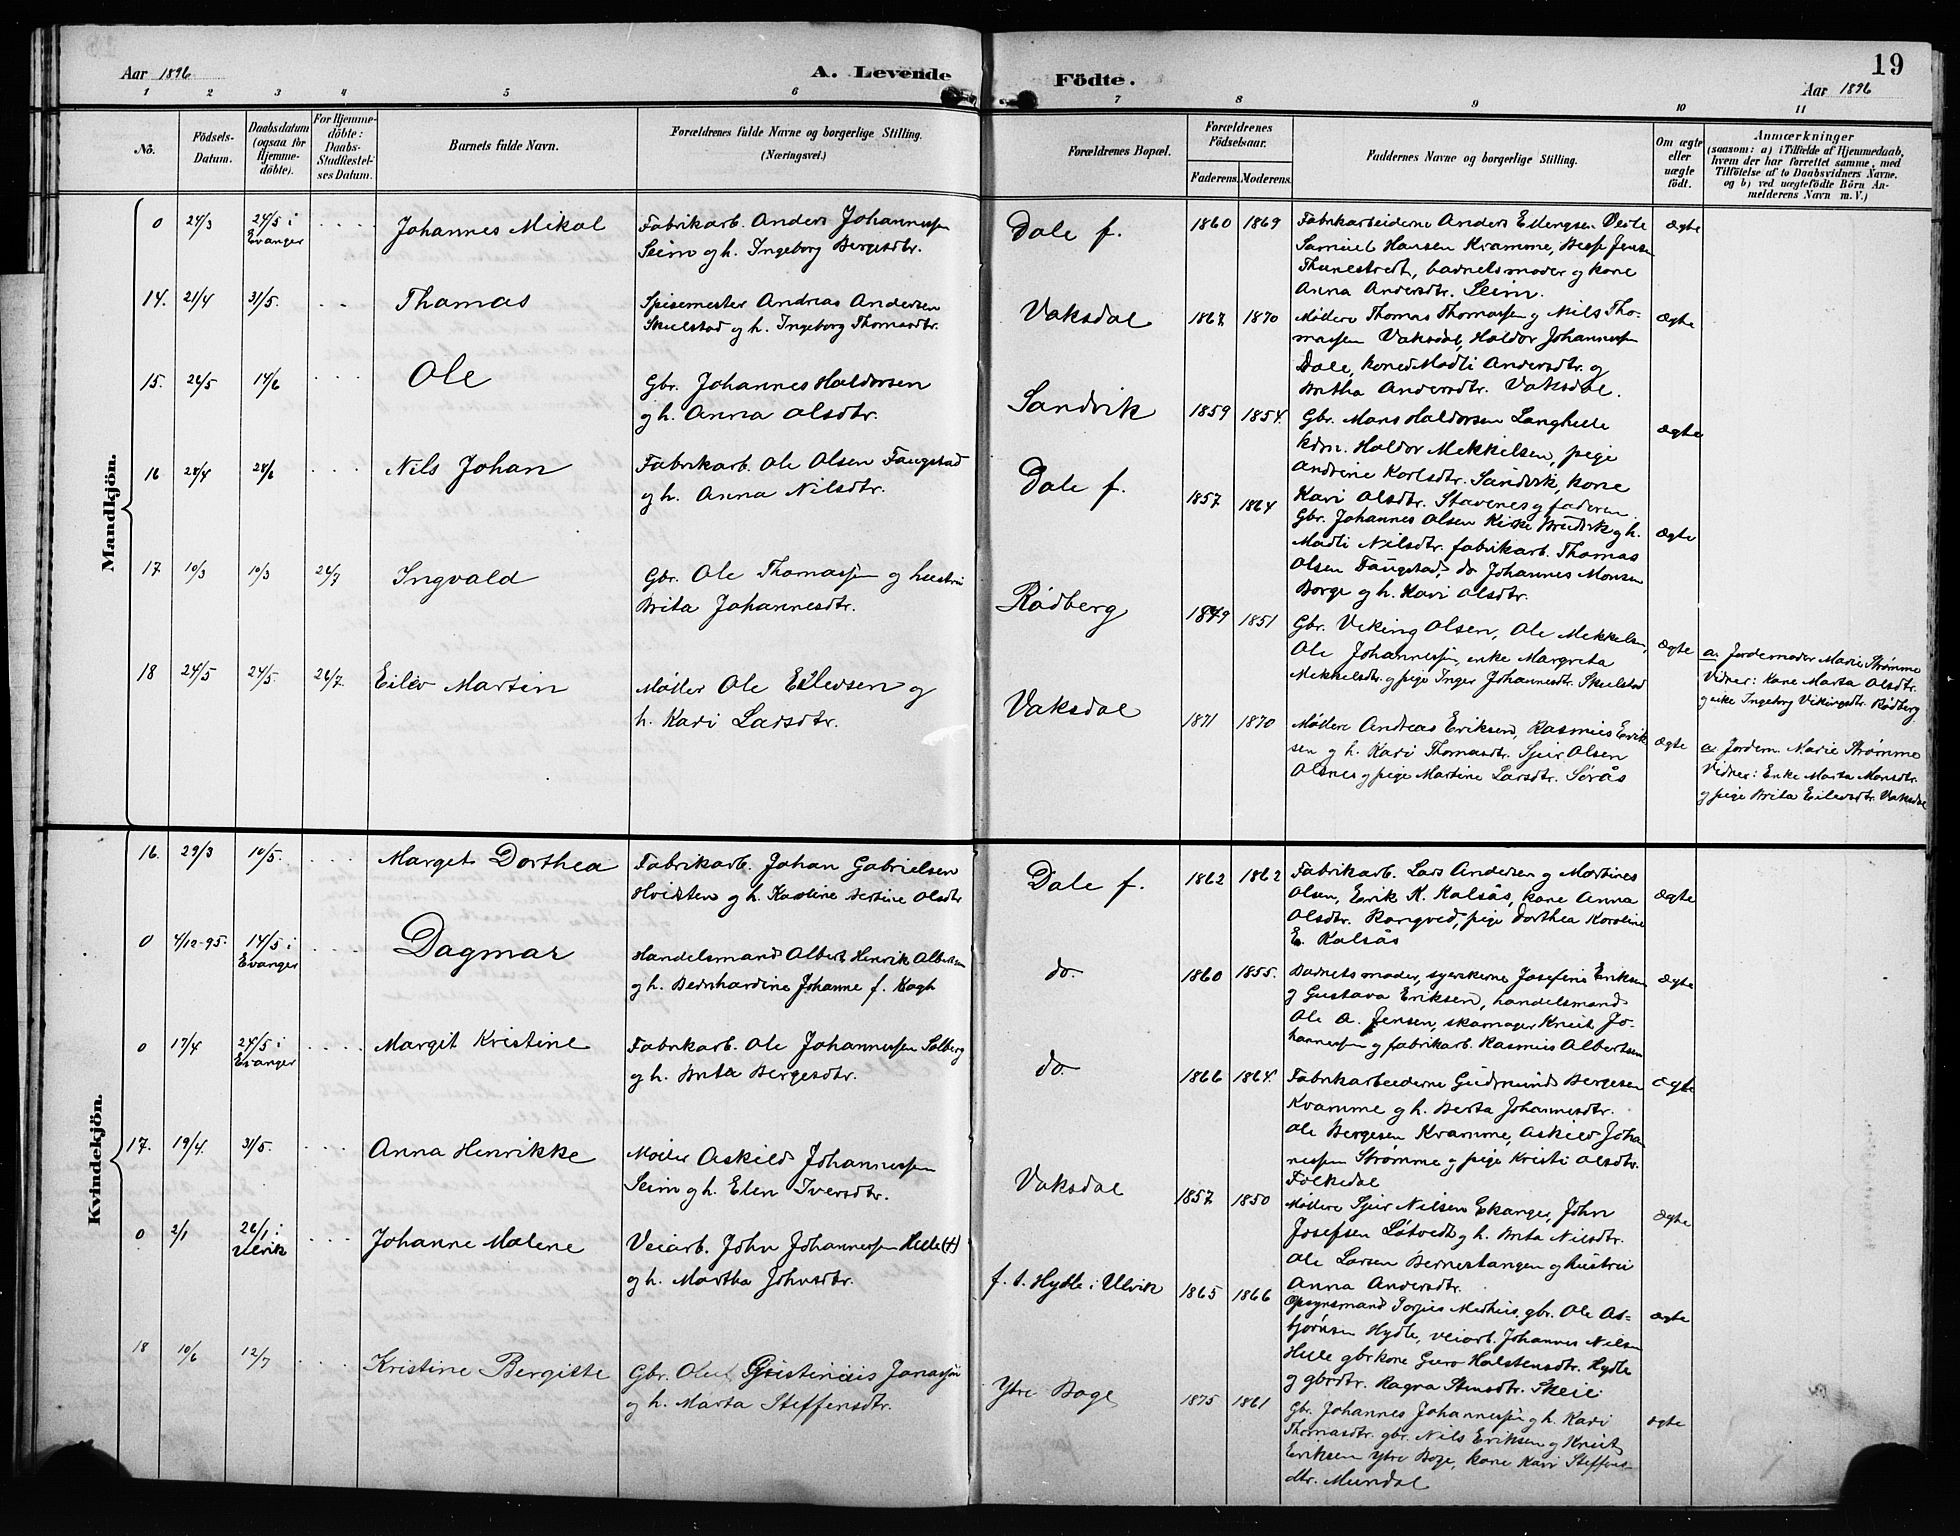 Aar 1896
A. Levende
Födte.
19
Aar 1896
1 2 3 4 5 6 7 8 9 10 11
No.
Födsels-
Datum.
Daabsdatum
(ogsaa for
Hjemme-
döbte).
For Hjemme-
döbte:
Daabs-
Stadfæstel-
ses Datum.
Barnets fulde Navn.
Forældrenes fulde Navne og borgerlige Stilling.
(Næringsvei.)
Forældrenes Bopæl.
Forældrenes
Födselsaar.
Faderens. Moderens.
Faddernes Navne og borgerlige Stilling.
Om ægte
eller
uægte
födt.
Anmærkninger
(saasom: a) i Tilfælde af Hjemmedaab,
hvem der har forrettet samme, med
Tilföielse af to Daabsvidners Navne.
og b) ved uægtefödte Börn An-
melderens Navn m. V.)
Mandkjön.
0 24/3 24/5 i
Evanger
Johannes Mikal
Fabrikarb. Anders Johannessen
Seim og h. Ingeborg Bergesdtr.
Dale f.
1860 1869
Fabrikarbeiderne Anders Ellengsen Veste
Samuel Hansen Kvamme, Jensen
barnets moder og kone
Anna Andersdtr. Seim.
ægte
14. 21/4 31/5.
Thomas
Spisemester Andreas Andersen
Skulstad og h. Ingeborg Thomasdtr.
Vaksdal
1867 1870
Møllere Thomas Thomassen og Nils Tho-
massen Vaksdal, Haldor Johannessen
Dale, kone Madli Andersdtr. og
Britha Andersdtr. Vaksdal.
ægte
15. 26/5 14/6
Ole
Gbr. Johannes Haldorsen
og h. Anna Olsdtr.
Sandvik
1859 1854
Gbr. Mons Haldorsen Langhelle
kdm. Haldor Mekkelsen, pige
Andrine Karlsdtr. Sandvik, kone
Kari Olsdtr. Stavenes og faderen.
ægte
16 28/4 28/6
Nils Johan
Fabrikarb. Ole Olsen Faugstad
og h. Anna Nilsdtr.
Dale f.
1857 1864
Gbr. Johannes Olsen og h.
Madli Nilsdtr. fabrikarb. Thomas
Olsen Faugstad, do Johannes Monsen
Borge og h. Kari Olsdtr.
ægte
17. 10/3 10/3 26/7
Ingvald
Gbr. Ole Thomassen og hustru
Brita Johannesdtr.
Rødberg
1849 1851
Gbr. Viking Olsen, Ole Mekkelsen,
Ole Johannessen, enke Margreta
Mekkelsdtr. og pige Inger Johannesdtr. Skulstad
ægte
a. Jordemoder Marie Strømme
Vidner: kone Marta Olsdtr.
og enke Ingeborg Vikingsdtr. Rødberg.
18 24/5 24/5. 26/7.
Eilev Martin
Møller Ole Eilevsen og
h. Kari Larsdtr.
Vaksdal
1871 1870
Møllere Andreas Eriksen, Rasmus Erik-
sen og h. Kari Thomasdtr. Sjur Olsen
Olsnes og pige Martine Larsdtr. Sørås
ægte
a. Jordem. Marie Strømme
Vidner: Enke Marta Monsdtr.
og pige Brita Eilevsdtr. Vaksdal
Kvindekjön.
16. 29/3 10/5.
Marget Dorthea
Fabrikarb. Johan Gabrielsen
Hvidsten og h. Karoline Olsdtr
Dale f.
1862 1862
Fabrikarb. Lars Andersen og Martines
Olsen, Erik K. Kalsås, kone Anna
Olsdtr. Rangved, pige Dorthea Karoline
E. Kalsås
ægte
0 4/12-95. 14/5 i
Evanger
Dagmar
Handelsmand Albert Henrik Albertsen
og h. Bernhardine Johanne f. Kogh
do
1860 1855.
Barnets moder, syerskerne Josefine Eriksen
og Gustava Eriksen, handelsmand
Ole A. Jensen, skomager Knut Jo-
hannessen og fabrikarb. Rasmus Albertsen
ægte
0 17/4 24/5 i
Evanger
Margit Kristine
Fabrikarb. Ole Johannessen Solberg
og h. Brita Bergesdtr.
do.
1866 1864.
Fabrikarbeiderne Gudmund Bergesen
Kvamme og h. Berta Johannesdtr.
Ole Bergesen Kvamme, Askild Johan-
nessen Strømme og pige Kristi Olsdtr.
Folkedal
ægte
17. 19/4. 31/5.
Anna Henrikke
Møller Askild Johannessen
Seim og h. Elen Iversdtr.
Vaksdal
1857 1850
Møllere Sjur Nilsen Ekanger, John
Josefsen Løtvedt og h. Brita Nilsdtr.
Ole Larsen Bernestangen og hustru
Anna Andersdtr.
ægte
0 2/1 26/1 i
Ulvik
Johanne Malene
Veiarb. John Johannessen Helle(+)
og h. Martha Johnsdtr.
f. t. Hydle i Ulvik
1865 1866
Opsynsmand Torjus Medhus, gbr. Ole As-
bjørnsen Hydle, veiarb. Johannes Nilsen
Helle gbrkone Guro Halstensdtr. Hydle
og gbrdtr. Ragna Stensdtr. Skeie
ægte
18 10/6 12/7
Kristine Bergitte
Gbr. Oluf Jonassen
og h. Marta Steffensdtr.
Ytre Boge
1875 1861
Gbr. Johannes Johannessen og h. Kari
Thomasdtr. gbr. Nils Eriksen og Knut
Eriksen Ytre Boge, kone Kari Steffens-
dtr. Mundal
ægte